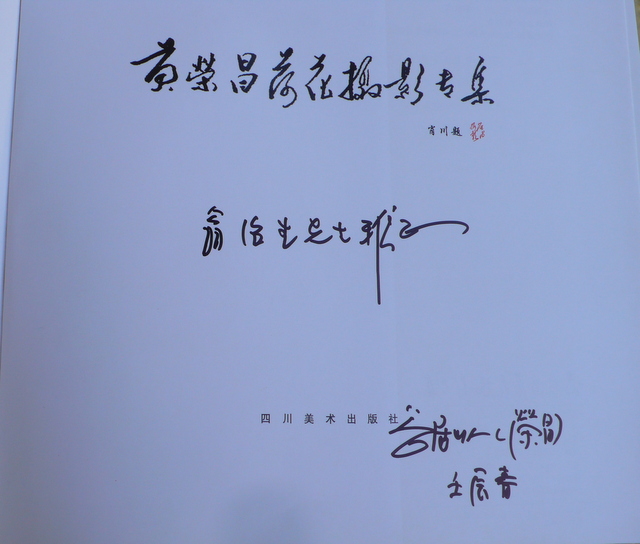 黄榮昌荷花摄影专集
肖川题
翁治生先生雅正
四川美术出版社
(荣昌)
壬辰春